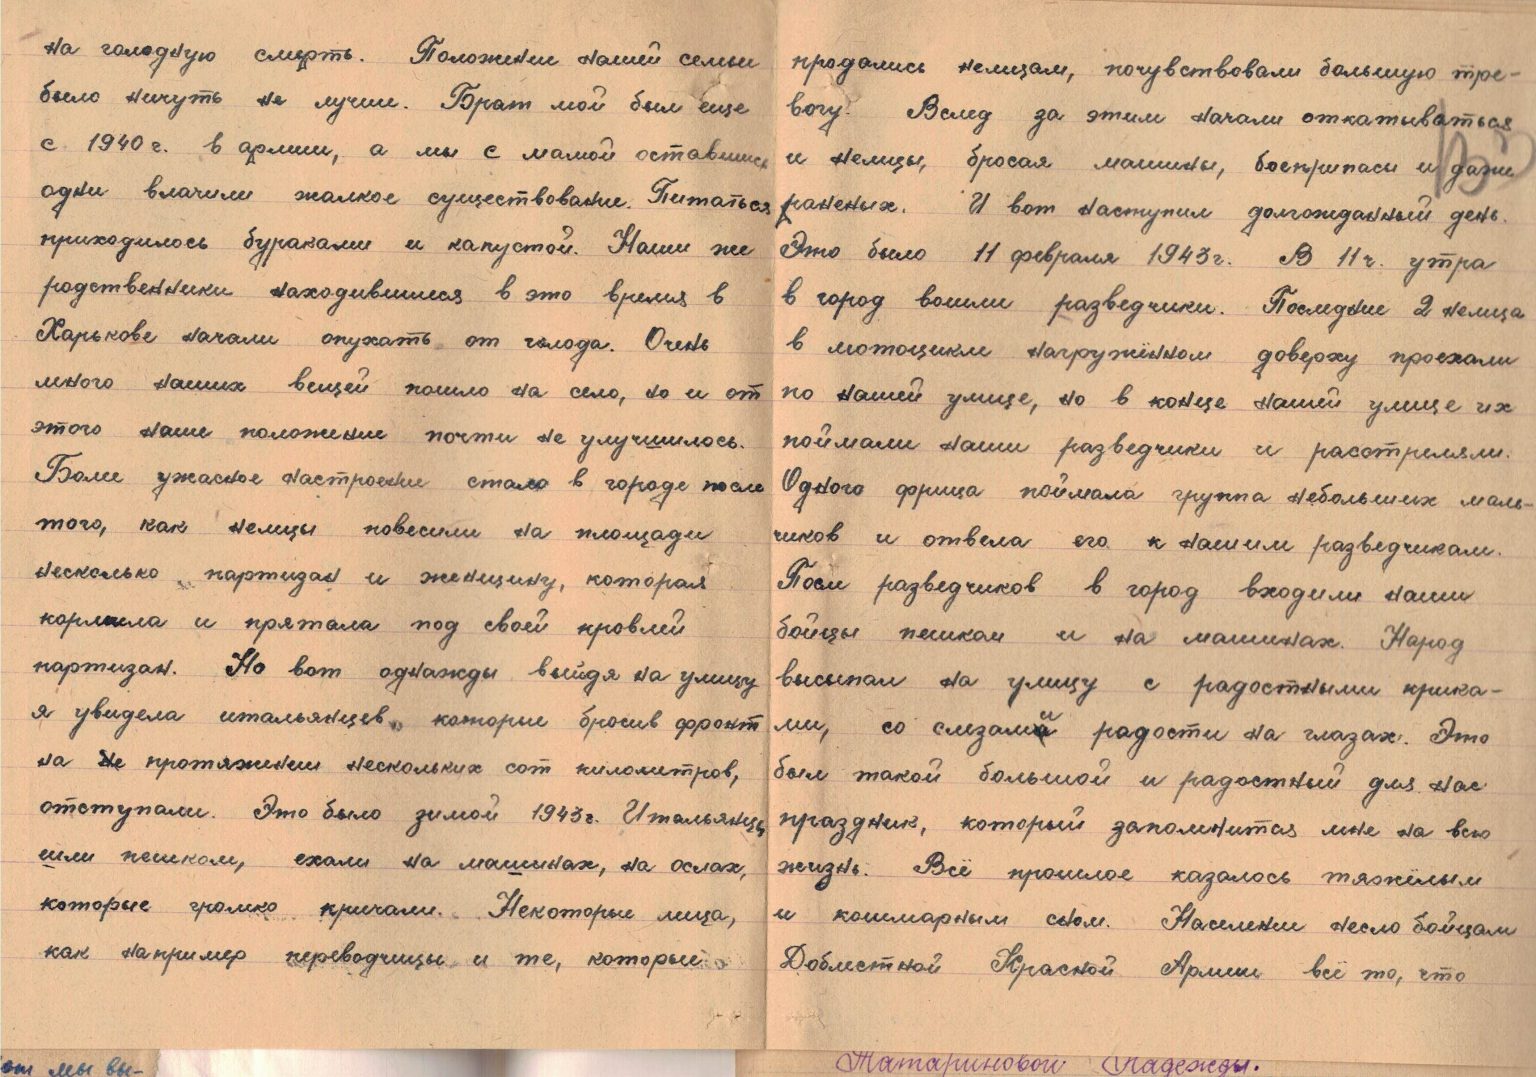 на голодную смерть. Положение нашей семьи
было ничуть не лучше. Брат мой был еще
с 1940 г. в армии, а мы с мамой оставшись
одни влачили жалкое существование. Питаться
приходилось бураками и капустой. Наши же
родственники находившиеся в это время в
Харькове начали опухать от голода. Очень
много наших вещей пошло на село, но и от
этого наше положение почти не улучшилось.
Более ужасное настроение стало в городе после
того, как немцы повесили на площади
несколько партизан и женщину, которая
кормила и прятала под своей кровлей
партизан. Но вот однажды выйдя на улицу
я увидела итальянцев, которые бросив фронт
на не протяжении нескольких сот километров,
отступали. Это было зимой 1943 г. Итальянцы
шли пешком, ехали на машинах, на ослах,
которые громко кричали. Некоторые лица,
как например переводчицы и те, которые
продались немцам, почувствовали большую тре-
вогу. Вслед за этим начали откатываться
и немцы, бросая машины, боеприпасы и даже
раненых. И вот наступил долгожданный день.
Это было 11 февраля 1943 г. В 11 ч. утра
в город вошли разведчики. Последние 2 немца
в мотоцикле нагружённом доверху проехали
по нашей улице, но в конце нашей улице их
поймали наши разведчики и расстреляли.
Одного фрица поймала группа небольших маль-
чиков и отвела его к нашим разведчикам.
После разведчиков в город входили наши
бойцы пешком и на машинах. Народ
высыпал на улицу с радостными крика-
ми, со слезами радости на глазах. Это
был такой большой и радостный для нас
праздник, который запомнится мне на всю
жизнь. Всё прошлое казалось тяжёлым
и кошмарным сном. Население несло бойцам
Доблестной Красной Армии всё то, что
мы вы-
Татариновой Надежды.